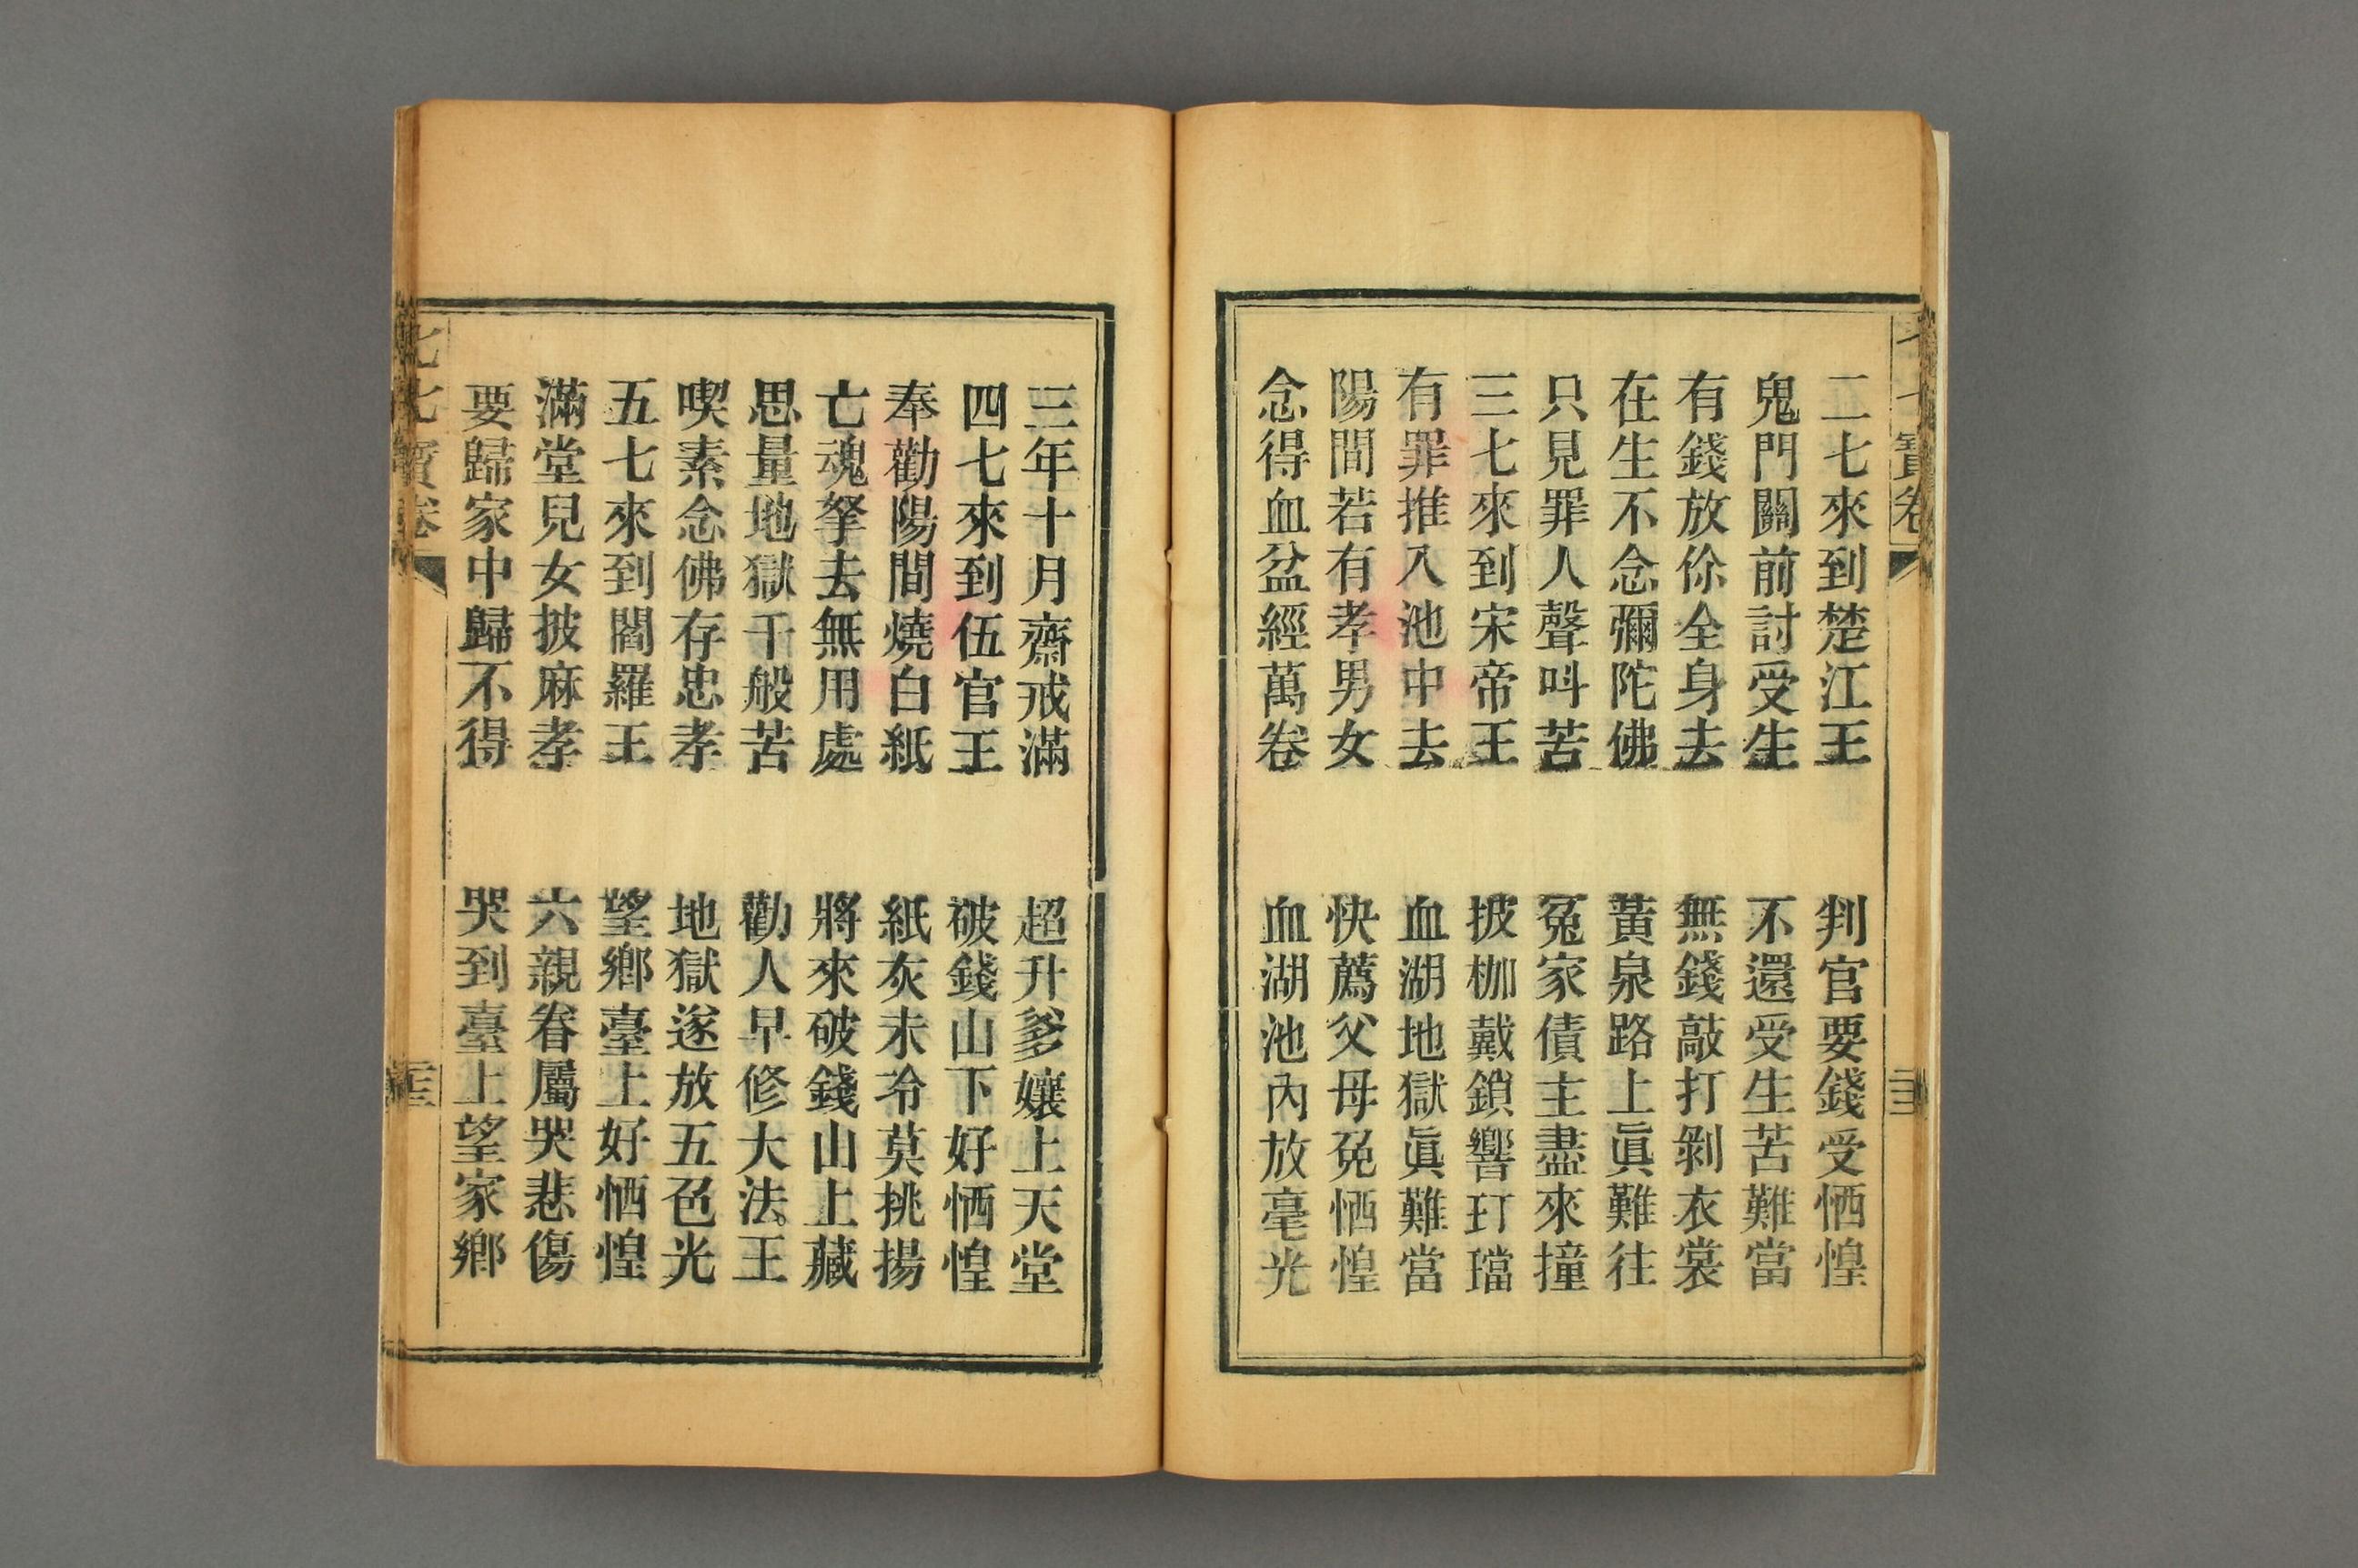 七七寶卷
二七來到楚江王　判官要錢受恓惶
鬼門關前討受生　不還受生苦難當
有錢放你全身去　無錢敲打剝衣裳
在生不念彌陀佛　黃泉路上眞難往
只見罪人聲呌苦　冤家債主盡來撞
三七來到宋帝王　披枷戴鎖響玎璫
有罪推入池中去　血湖地獄眞難當
陽間若有孝男女　快薦父母免恓惶
念得血盆經萬卷　血湖池內放毫光
三年十月齋戒滿　超升爹孃上天堂
四七來到伍官王　破錢山下好恓惶
奉勸陽間燒白紙　紙灰未冷莫挑揚
亡魂拏去無用處　將來破錢山上藏
思量地獄千般苦　勸人早修大法王
喫素念佛存忠孝　地獄遂放五色光
五七來到閻羅王　望鄉臺上好恓惶
滿堂兒女披麻孝　六親眷屬哭悲傷
要歸家中歸不得　哭到臺上望家鄉
七七寶卷